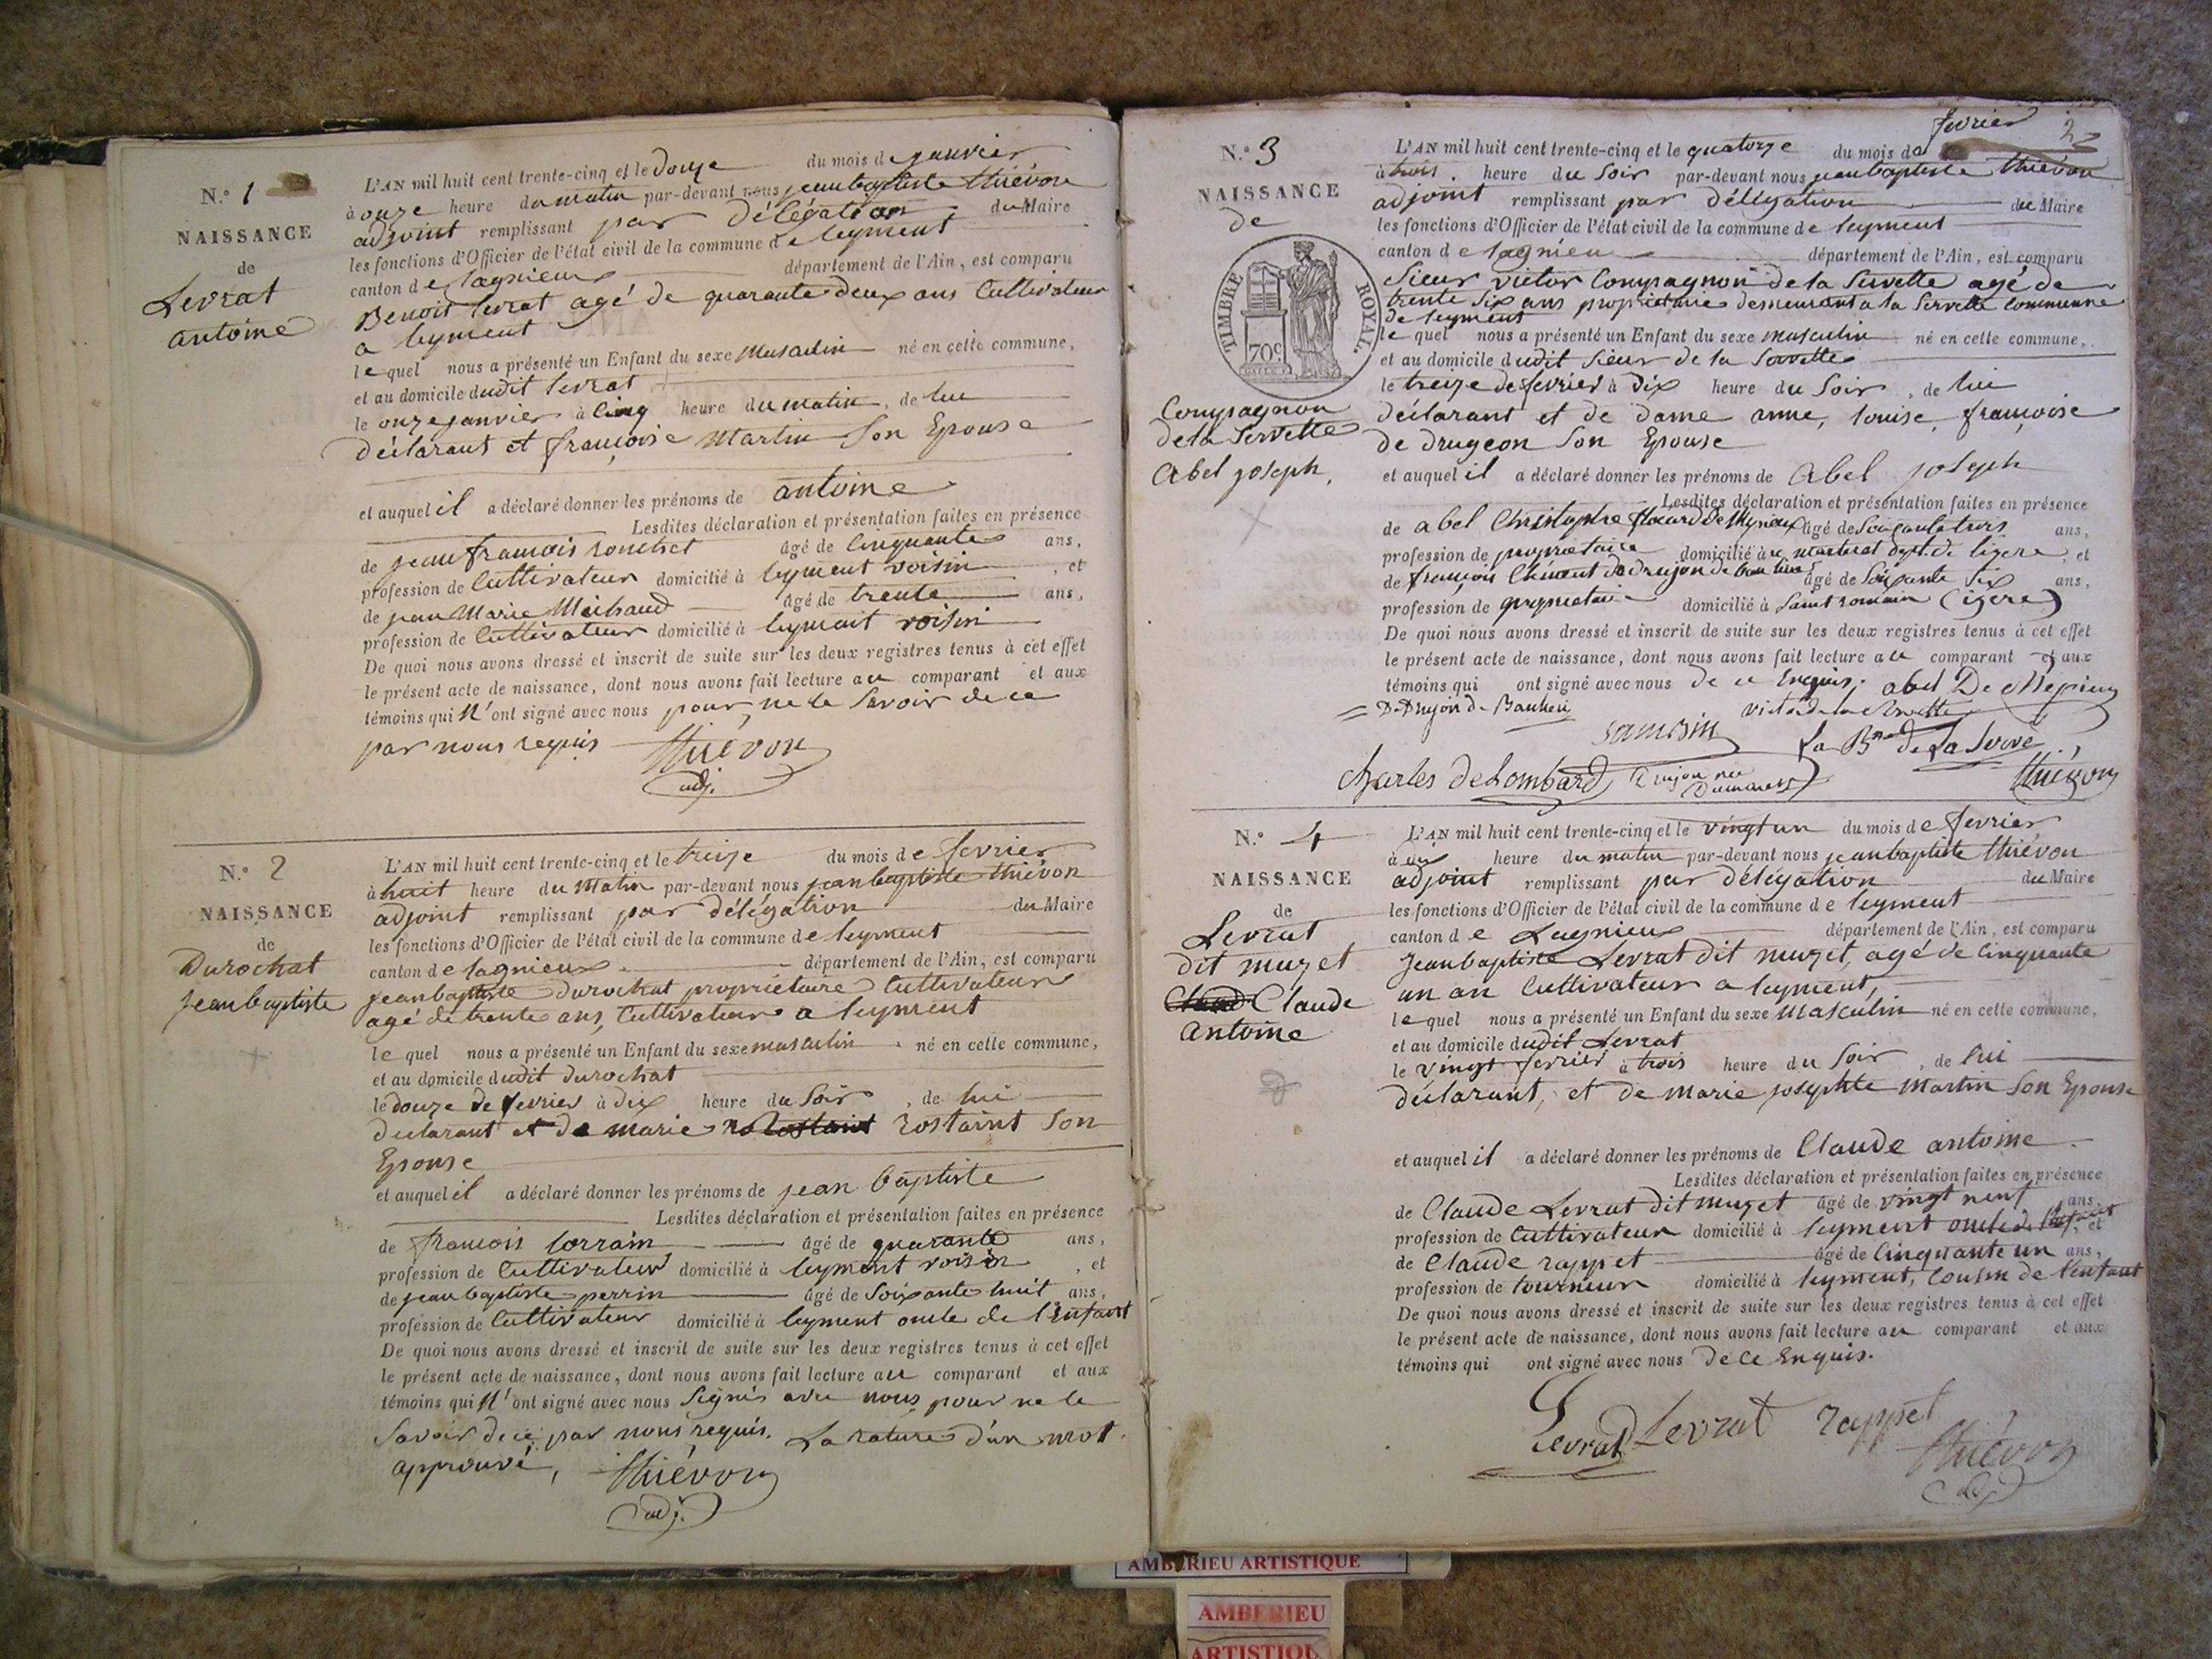 N.° 1
NAISSANCE
de
Levrat
antoine
L'AN mil huit cent trente-cinq et le douze du mois de janvier
à onze heure du matin par-devant nous jean baptiste thiévon
adjoint remplissant par délégation du Maire
les fonctions d'Officier de l'état civil de la commune de leyment
canton de lagnieux département de l'Ain, est comparu
Benoit levrat agé de quarante deux ans Cultivateur
a leyment
lequel nous a présenté un Enfant du sexe masculin né en cette commune,
et au domicile dudit levrat
le onze janvier à Cinq heure du matin, de lui
déclarant et françoise Martin Son Epouse
et auquel il a déclaré donner les prénoms de antoine
Lesdites déclaration et présentation faites en présence
de jean francois âgé de Cinquante ans,
profession de Cultivateur domicilié à leyment voisin, et
de jean Marie Michaud âgé de trente ans,
profession de Cultivateur domicilié à leyment voisin
De quoi nous avons dressé et inscrit de suite sur les deux registres tenus à cet effet
le présent acte de naissance, dont nous avons fait lecture au comparant et aux
témoins qui n'ont signé avec nous pour ne le Savoir de ce
par nous requis Thiévon
adj.
N.° 2
NAISSANCE
de
Durochat
jean baptiste
L'AN mil huit cent trente-cinq et le treize du mois de fevrier
à huit heure du matin par-devant nous jean baptiste thiévon
adjoint remplissant par délégation du Maire
les fonctions d'Officier de l'état civil de la commune de leyment
canton de lagnieux département de l'Ain, est comparu
jean baptiste durochat propriétaire Cultivateur
agé de trente ans, Cultivateur a leyment
lequel nous a présenté un Enfant du sexe masculin né en cette commune,
et au domicile dudit durochat
le douze de fevrier à dix heure du Soir, de lui
declarant et de marie rostaint Son
Epouse
et auquel il a déclaré donner les prénoms de jean baptiste
Lesdites déclaration et présentation faites en présence
de francois lorrain âgé de quarante ans,
profession de Cultivateur domicilié à leyment voisin, et
de jean baptiste perrin âgé de Soixante huit ans,
profession de Cultivateur domicilié à leyment oncle de l'enfant
De quoi nous avons dressé et inscrit de suite sur les deux registres tenus à cet effet
le présent acte de naissance, dont nous avons fait lecture au comparant et aux
témoins qui n'ont signé avec nous Signés avec nous pour ne le
Savoir de ce par nous requis. La rature d'un mot
approuvé, Thiévon
adj.
2
fevrier
N.° 3
NAISSANCE
de
TIMBRE ROYAL.
70c
Compagnon
de la Servette
Abel joseph,
L'AN mil huit cent trente-cinq et le quatorze du mois de
à trois heure du Soir par-devant nous jean baptiste thiévon
adjoint remplissant par délégation du Maire
les fonctions d'Officier de l'état civil de la commune de leyment
canton de lagnieu département de l'Ain, est comparu
Sieur victor Compagnon de la Servette agé de
trente Six ans propriétaire demeurant a la Servette Commune
de leyment
lequel nous a présenté un Enfant du sexe masculin né en cette commune,
et au domicile dudit Sieur de la Servette
le treize de fevrier à dix heure du Soir, de lui
déclarant et de dame anne, louise, françoise
de drugeon Son Epouse
et auquel il a déclaré donner les prénoms de Abel joseph
Lesdites déclaration et présentation faites en présence
de abel Christophe âgé de Soixante trois ans,
profession de propriétaire domicilié à et
de françois Clément de âgé de Soixante Six ans,
profession de proprietaire domicilié à Saint romain (izere)
De quoi nous avons dressé et inscrit de suite sur les deux registres tenus à cet effet
le présent acte de naissance, dont nous avons fait lecture au comparant et aux
témoins qui ont signé avec nous de ce Enquis. abel De
victor de la Servette
Charles de Lombard
Thiévon
N.° 4
NAISSANCE
de
Levrat
dit muzet
Claude
antoine
L'AN mil huit cent trente-cinq et le vingt un du mois de fevrier
à heure du matin par-devant nous jean baptiste thiévon
adjoint remplissant par délégation du Maire
les fonctions d'Officier de l'état civil de la commune de leyment
canton de Lagnieux département de l'Ain, est comparu
jean baptiste Levrat dit muzet, agé de Cinquante
un an Cultivateur a leyment,
lequel nous a présenté un Enfant du sexe masculin né en cette commune,
et au domicile dudit Levrat
le vingt fevrier à trois heure du Soir, de lui
déclarant, et de marie josephte Martin Son Epouse
et auquel il a déclaré donner les prénoms de Claude antoine
Lesdites déclaration et présentation faites en présence
de Claude Levrat dit muzet âgé de vingt neuf ans,
profession de Cultivateur domicilié à leyment oncle de et
de Claude rappet âgé de Cinquante un ans,
profession de tourneur domicilié à leyment, Cousin de l'enfant
De quoi nous avons dressé et inscrit de suite sur les deux registres tenus à cet effet
le présent acte de naissance, dont nous avons fait lecture au comparant et aux
témoins qui ont signé avec nous de ce Enquis.
Levrat Levrat rappet
Thiévon
AMBERIEU ARTISTIQUE
AMBERIEU